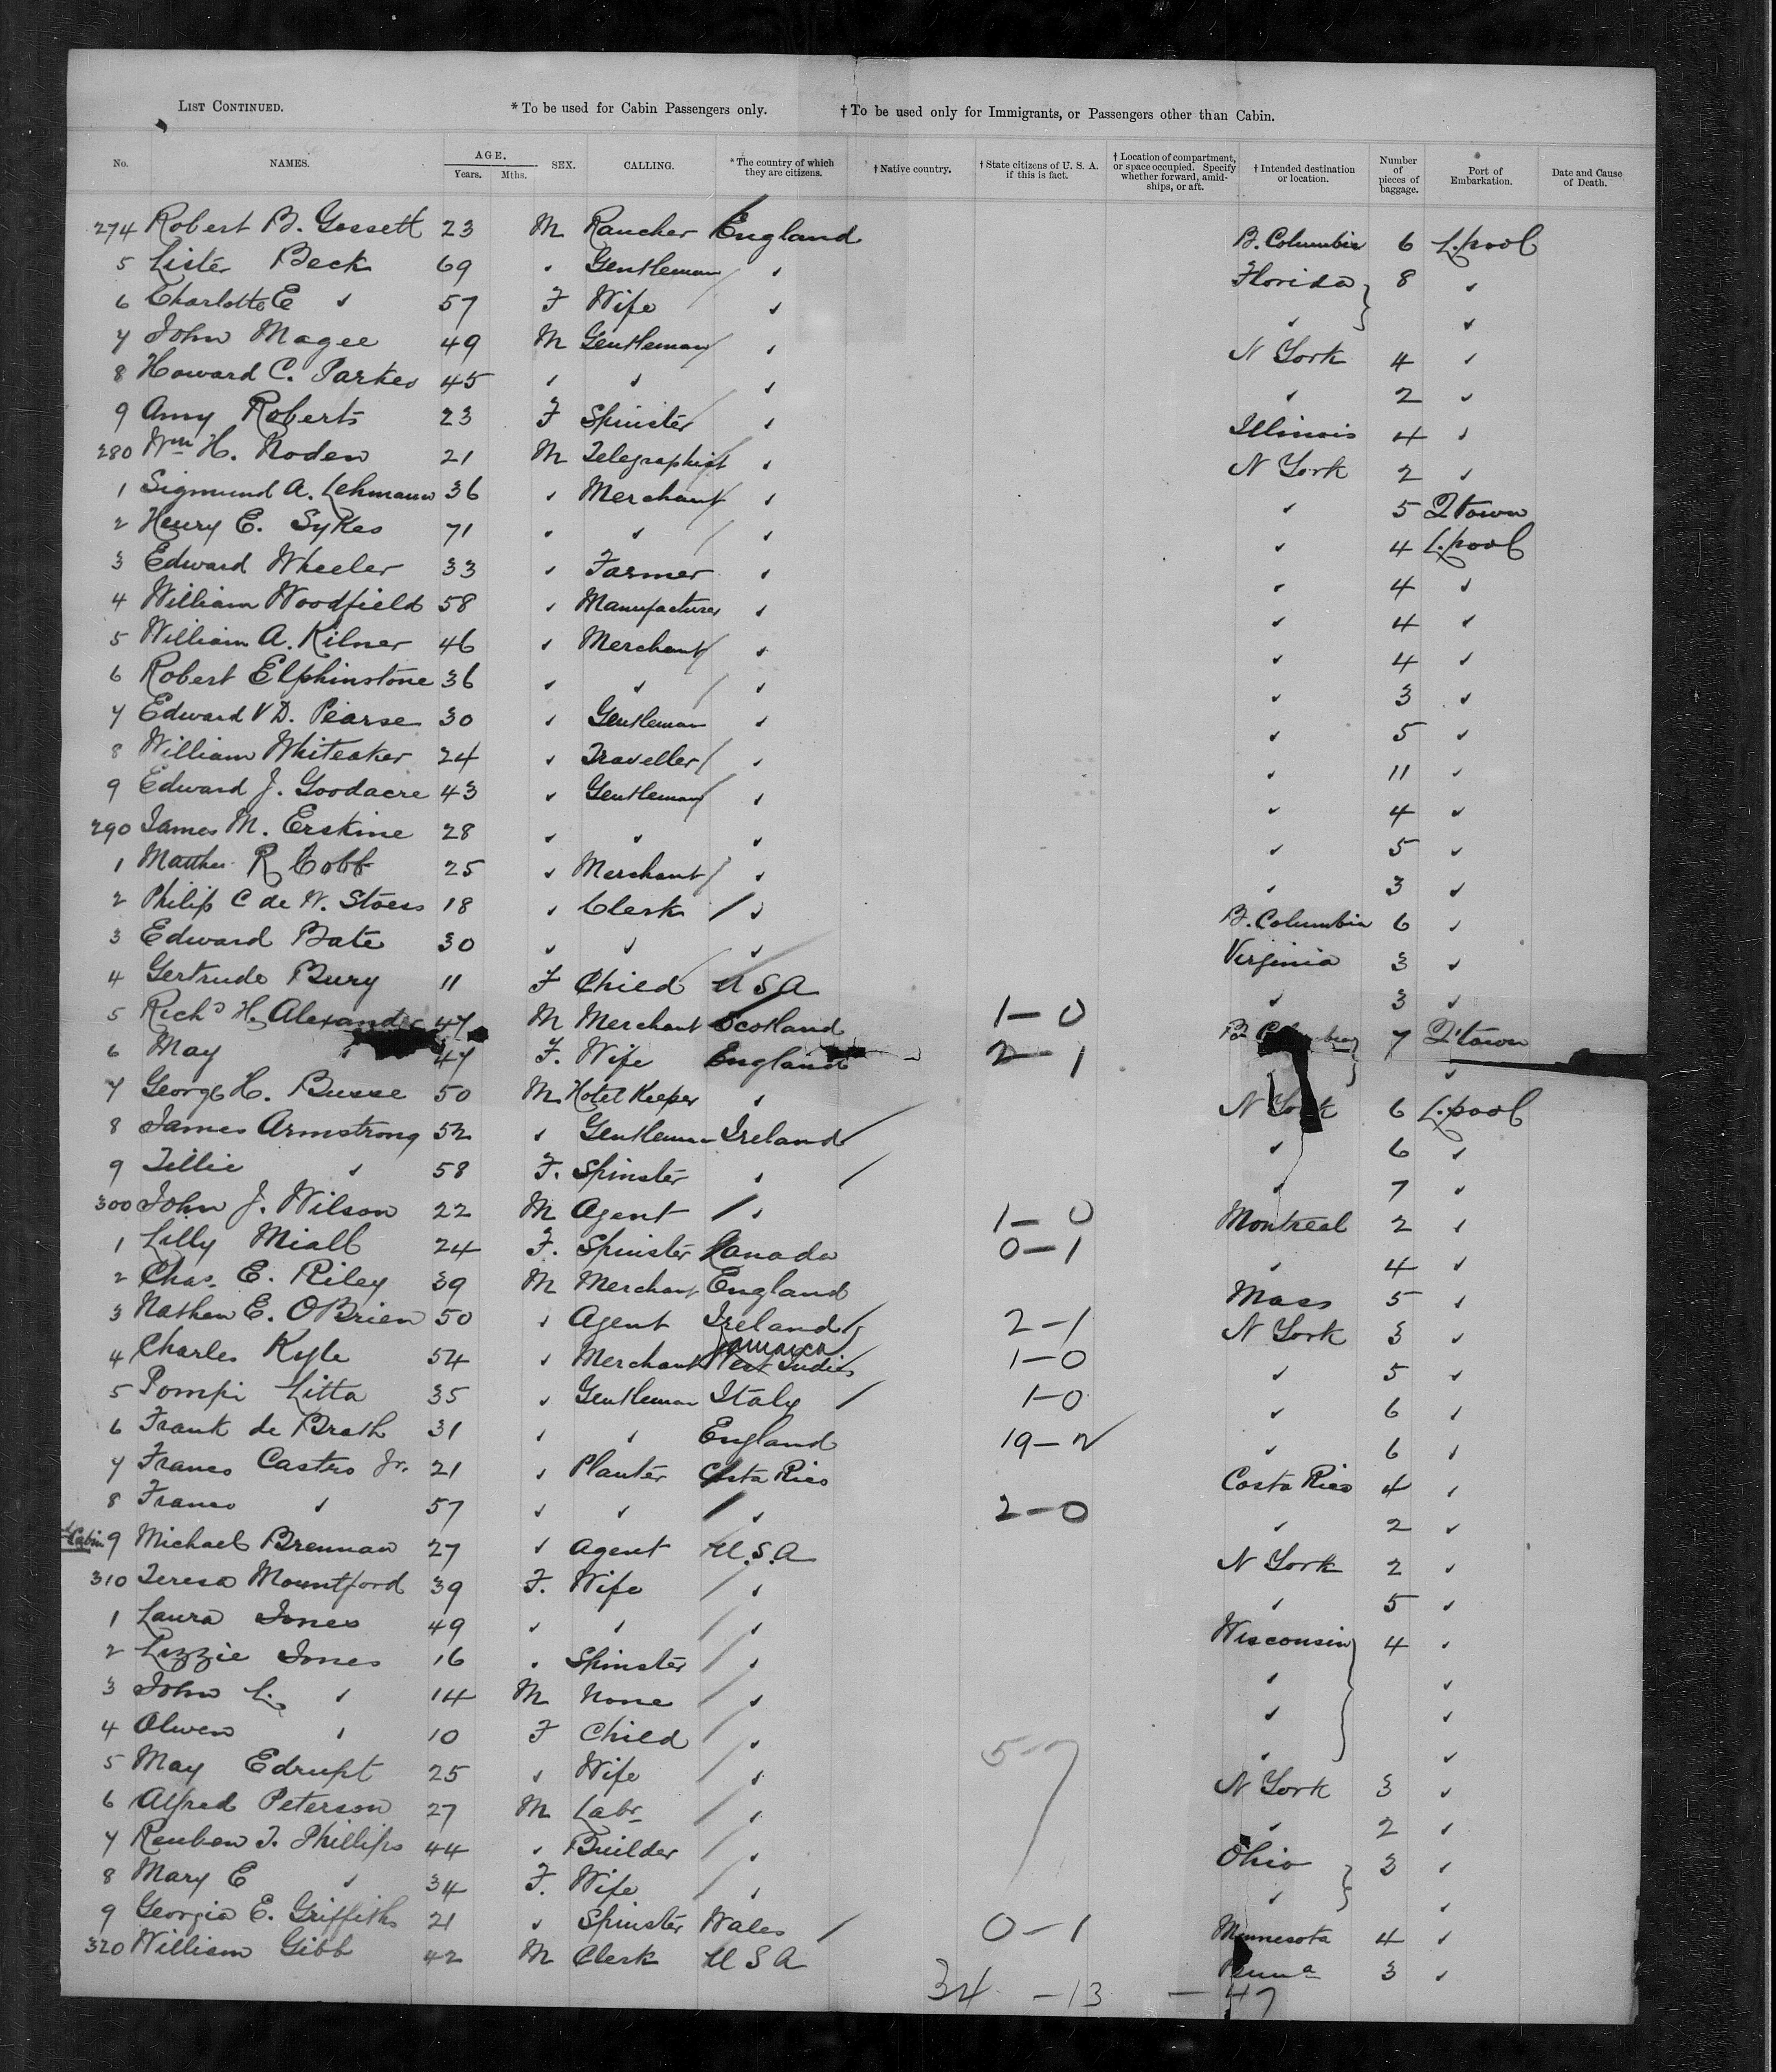 LIST CONTINUED. * To be used for Cabin Passengers only. † To be used only for Immigrants, or Passengers other than Cabin.
No. NAMES. AGE. Years. Mths. SEX. CALLING. * The country of which they are citizens. † Native country. † State citizens of U. S. A. if this is fact. † Location of compartment, or space occupied. Specify whether forward, amidships, or aft. † Intended destination or location. Number of pieces of baggage. Port of Embarkation. Date and Cause of Death.
274 Robert B. Gossett 23 M Rancher England B. Columbia 6 L.pool
5 Lister Beck 69 " Gentleman " Florida 8 "
6 Charlotte E " 57 F Wife " " "
7 John Magee 49 M Gentleman " N York 4 "
8 Howard C. Parkes 45 " " " " 2 "
9 Amy Roberts 23 F Spinster " Illinois 4 "
280 Wm H. Noden 21 M Telegraphist " N York 2 "
1 Sigmund A. Lehmann 36 " Merchant " " 5 Qtown
2 Henry E. Sykes 71 " " " " 4 L.pool
3 Edward Wheeler 33 " Farmer " " 4 "
4 William Woodfield 58 " Manufacturer " " 4 "
5 William A. Kilner 46 " Merchant " " 4 "
6 Robert Elphinstone 36 " " " " 3 "
7 Edward V D. Pearse 30 " Gentleman " " 5 "
8 William Whiteaker 24 " Traveller " " 11 "
9 Edward J. Goodacre 43 " Gentleman " " 4 "
290 James M. Erskine 28 " " " " 5 "
1 R Cobb 25 " Merchant " " 3 "
2 Philip C de W. Stoess 18 " Clerk " B. Columbia 6 "
3 Edward Bate 30 " " " Virginia 3 "
4 Gertrude Bury 11 F Child U S A " 3 "
5 Richd H. Alexander 47 M Merchant Scotland 1-0 7 Q'town
6 May " 47 F. Wife England 2-1 "
7 George H. Busse 50 M. Hotel Keeper " N York 6 L.pool
8 James Armstrong 52 " Gentleman Ireland " 6 "
9 Tillie " 58 F. Spinster " " 7 "
300 John J. Wilson 22 M Agent " 1-0 Montreal 2 "
1 Lilly Miall 24 F. Spinster Canada 0-1 " 4 "
2 Chas. E. Riley 39 M Merchant England Mass 5 "
3 Nathan E. OBrien 50 " Agent Ireland 2-1 N York 3 "
4 Charles Kyle 54 " Merchant Jamaica West Indies 1-0 " 5 "
5 Pompi Litta 35 " Gentleman Italy 1-0 " 6 "
6 Frank de Brath 31 " " England 19-2 " 6 "
7 Franco Castro Jr. 21 " Planter Costa Rico Costa Rico 4 "
8 Franco " 57 " " " 2-0 " 2 "
Cabin 9 Michael Brennan 27 " Agent U.S.A N York 2 "
310 Teresa Mountford 39 F. Wife " " 5 "
1 Laura Jones 49 " " " Wisconsin 4 "
2 Lizzie Jones 16 " Spinster " " "
3 John L. " 14 M None " " "
4 Olwen " 10 F Child " " "
5 May Edrupt 25 " Wife " N York 3 "
6 Alfred Peterson 27 M Labr " " 2 "
7 Reuben T. Phillips 44 " Builder " Ohio 3 "
8 Mary E " 34 F. Wife " " "
9 Georgia E. Griffiths 21 " Spinster Wales 0-1 Minnesota 4 "
320 William Gibb 42 M Clerk U S A Penna 3 "
34 -13 - 47